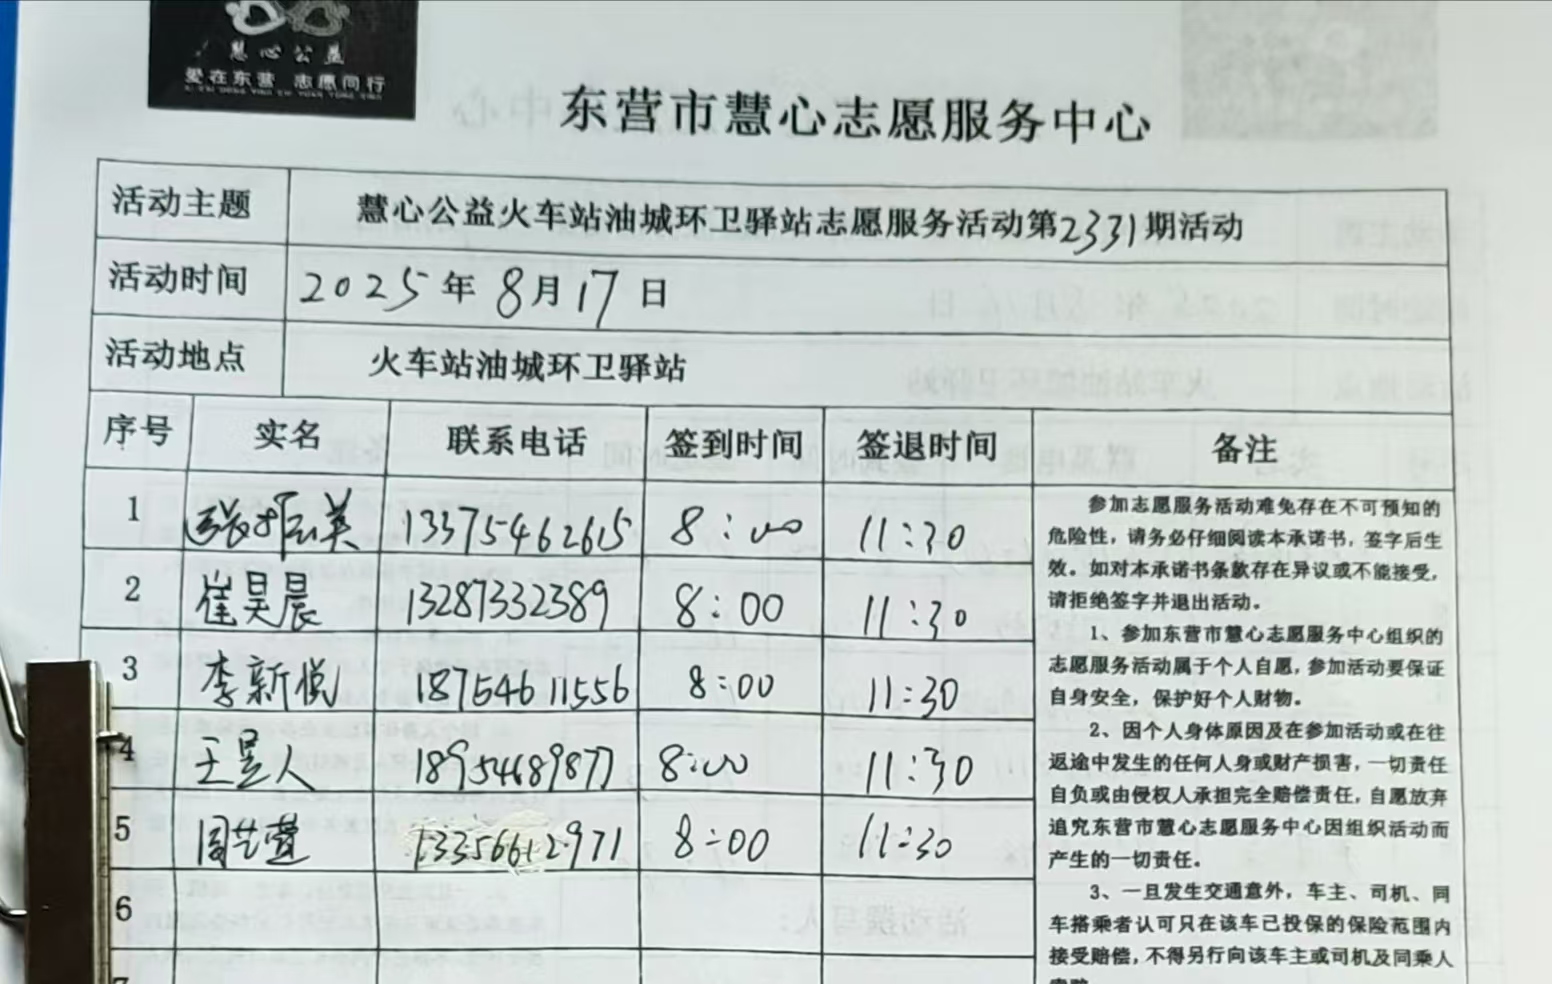 慧心公益
爱在东营 志愿同行
东营市慧心志愿服务中心
活动主题 慧心公益火车站油城环卫驿站志愿服务活动第2331期活动
活动时间 2025年8月17日
活动地点 火车站油城环卫驿站
序号 实名 联系电话 签到时间 签退时间 备注
1 张振英 13375462615 8:00 11:30
2 崔昊晨 13287332389 8:00 11:30
3 李新悦 18754611556 8:00 11:30
4 王昱人 18954689877 8:00 11:30
5 周艺萱 13356612971 8:00 11:30
6
7
参加志愿服务活动难免存在不可预知的
危险性，请务必仔细阅读本承诺书，签字后生
效。如对本承诺书条款存在异议或不能接受，
请拒绝签字并退出活动。
1、参加东营市慧心志愿服务中心组织的
志愿服务活动属于个人自愿，参加活动要保证
自身安全，保护好个人财物。
2、因个人身体原因及在参加活动或在往
返途中发生的任何人身或财产损害，一切责任
自负或由侵权人承担完全赔偿责任，自愿放弃
追究东营市慧心志愿服务中心因组织活动而
产生的一切责任。
3、一旦发生交通意外，车主、司机、同
车搭乘者认可只在该车已投保的保险范围内
接受赔偿，不得另行向该车主或司机及同乘人